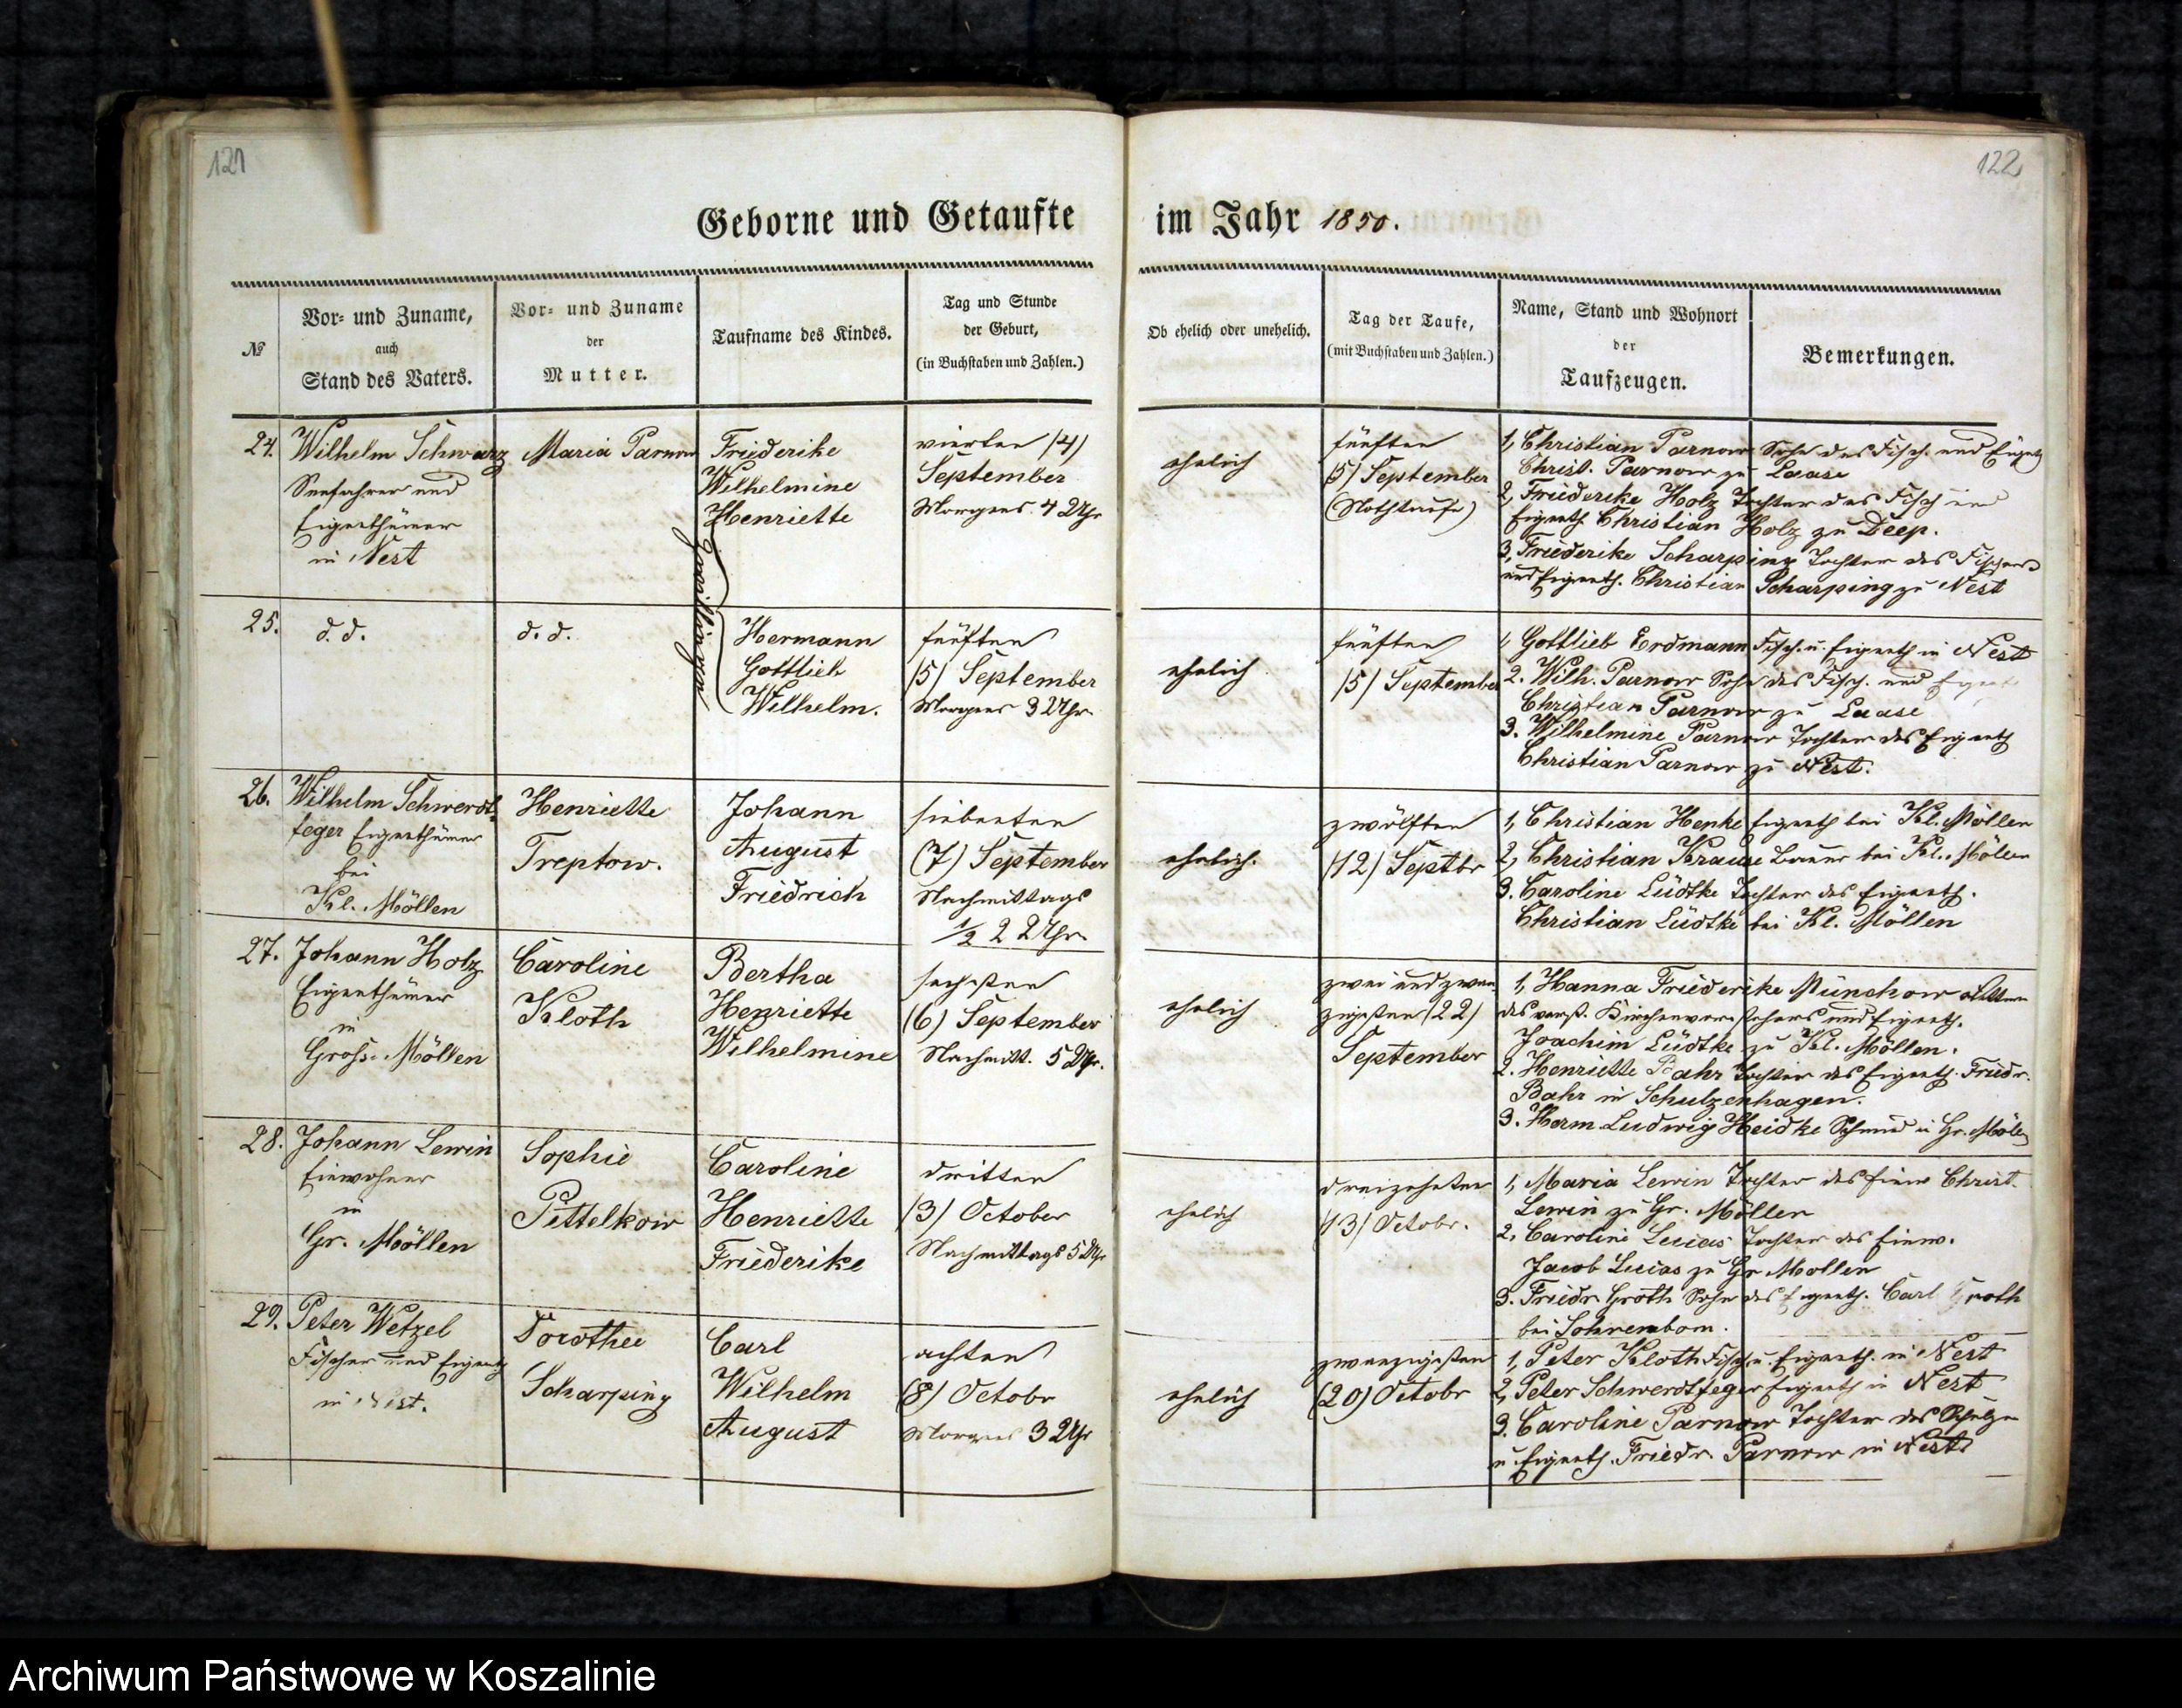 121
122
Geborne und Getaufte im Jahr 1850.
№
Vor- und Zuname,
auch
Stand des Vaters.
Vor- und Zuname
der
Mutter.
Taufname des Kindes.
Tag und Stunde
der Geburt,
(in Buchstaben und Zahlen.)
Ob ehelich oder unehelich.
Tag der Taufe,
(mit Buchstaben und Zahlen.)
Name, Stand und Wohnort
der
Taufzeugen.
Bemerkungen.
24.
Wilhelm Schwarz
Seefahrer und
Eigenthümer
in Nest
Maria Parnow
Friederike
Wilhelmine
Henriette
Zwillinge
vierten /4/
September
Morgens 4 Uhr
ehelich
fünften
/5/ September
(Nothtaufe)
1, Christian Parnow Sohn des Fisch. und Eigenth
Christ. Parnow zu Laase
2, Friederike Holz Tochter des Fisch und
Eigenth Christian Holz zu Deep.
3, Friederike Scharping Tochter des Fischers
und Eigenth. Christian Scharping zu Nest
25.
d. d.
d. d.
Hermann
Gottlieb
Wilhelm.
fünften
/5/ September
Morgens 3 Uhr
ehelich
fünften
/5/ September
1, Gottlieb Erdmann Fisch. u. Eigenth in Nest
2. Wilh. Parnow Sohn des Fisch. und Eigenth
Christian Parnow zu Laase
3. Wilhelmine Parnow Tochter des Eigenth
Christian Parnow zu Nest.
26.
Wilhelm Schwerdt-
feger Eigenthümer
bei
Kl. Möllen
Henriette
Treptow.
Johann
August
Friedrich
siebenten
(7) September
Nachmittags
½ 2 Uhr.
ehelich.
zwölften
/12/ Septbr
1, Christian Henke Eigenth bei Kl. Möllen
2, Christian Krause Bauer bei Kl. Möllen
3. Caroline Lüdtke Tochter des Eigenth.
Christian Lüdtke bei Kl. Möllen
27.
Johann Holz
Eigenthümer
in
Gross-Möllen
Caroline
Kloth
Bertha
Henriette
Wilhelmine
sechsten
(6) September
Nachmitt. 5 Uhr.
ehelich
zwei und zwan
zigsten (22)
September
1, Hanna Friederike Münchow
des verst. Kirchenvorstehers und Eigenth.
Joachim Lüdtke zu Kl. Möllen.
2. Henriette Bahr Tochter des Eigenth. Friedr.
Bahr in Schulzenhagen.
3. Herm Ludwig Heidke Schmied in Gr. Möllen
28.
Johann Lewin
Einwohner
in
Gr. Möllen
Sophie
Pettelkow
Caroline
Henriette
Friederike
dritten
/3/ October
Nachmittags 5 Uhr
ehelich
dreizehnten
/13/ Octobr.
1, Maria Lewin Tochter des Einw Christ.
Lewin zu Gr. Möllen
2, Caroline Lucas Tochter des Einw.
Jacob Lucas zu Gr Möllen
3. Friedr Groth Sohn des Eigenth. Carl Groth
bei Sohrenbom.
29.
Peter Wetzel
Fischer und Eigenth
in Nest.
Dorothee
Scharping
Carl
Wilhelm
August
achten
(8) Octobr
Morgens 3 Uhr
ehelich
zwanzigsten
(20) Octobr
1, Peter Kloth Fisch u. Eigenth. in Nest
2, Peter Schwerdtfeger Eigenth in Nest
3. Caroline Parnow Tochter des Schulzen
u. Eigenth. Friedr. Parnow in Nest
Archiwum Państwowe w Koszalinie